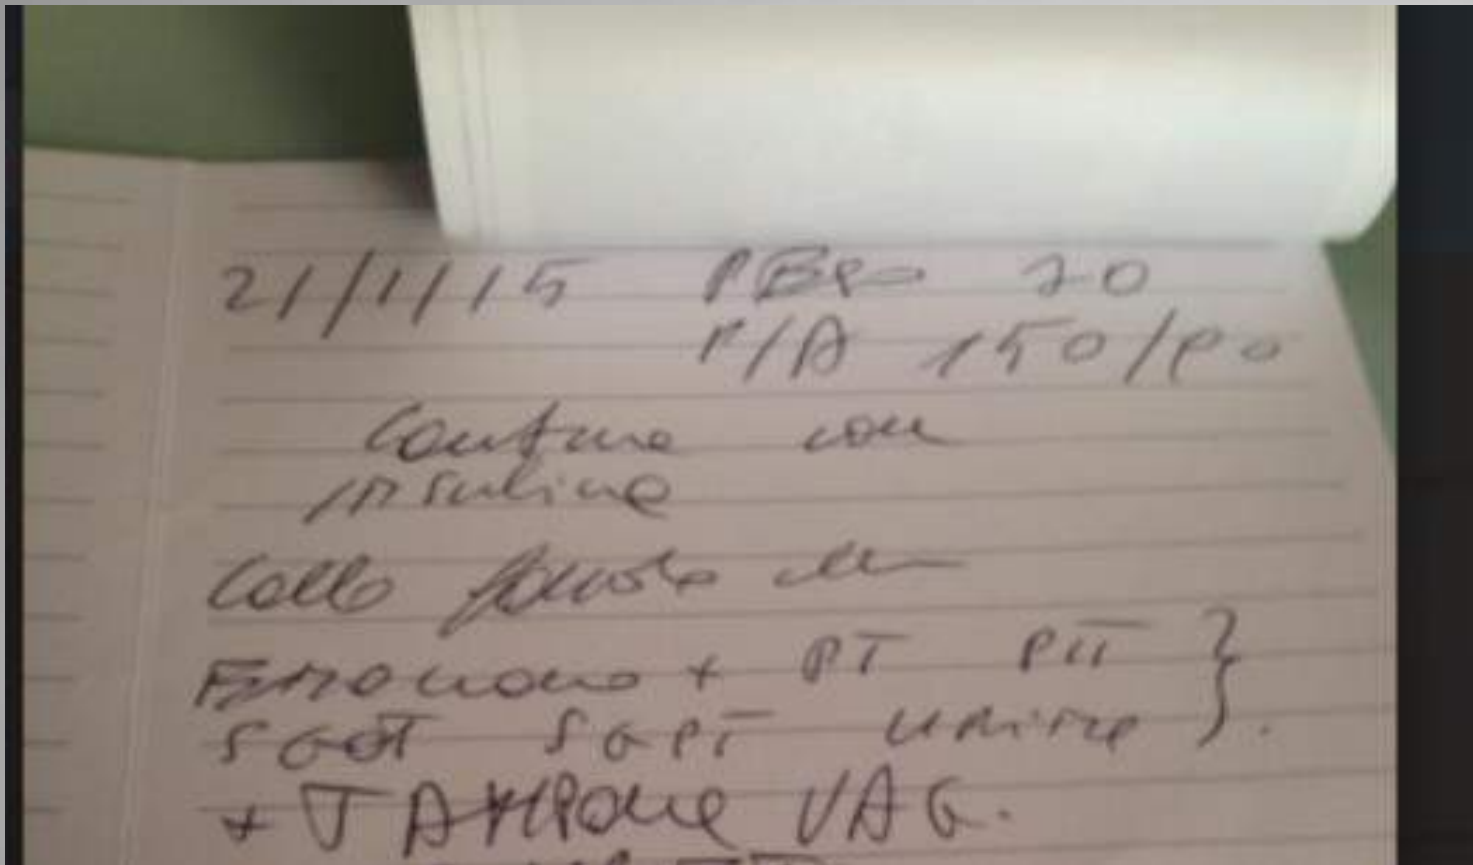 21/1/15 PESO 70
P/A 150/80
Continua con
insulina
Collo
Emocromo + PT PTT }
SGOT SGPT urine } .
+ TAMPONE VAG.